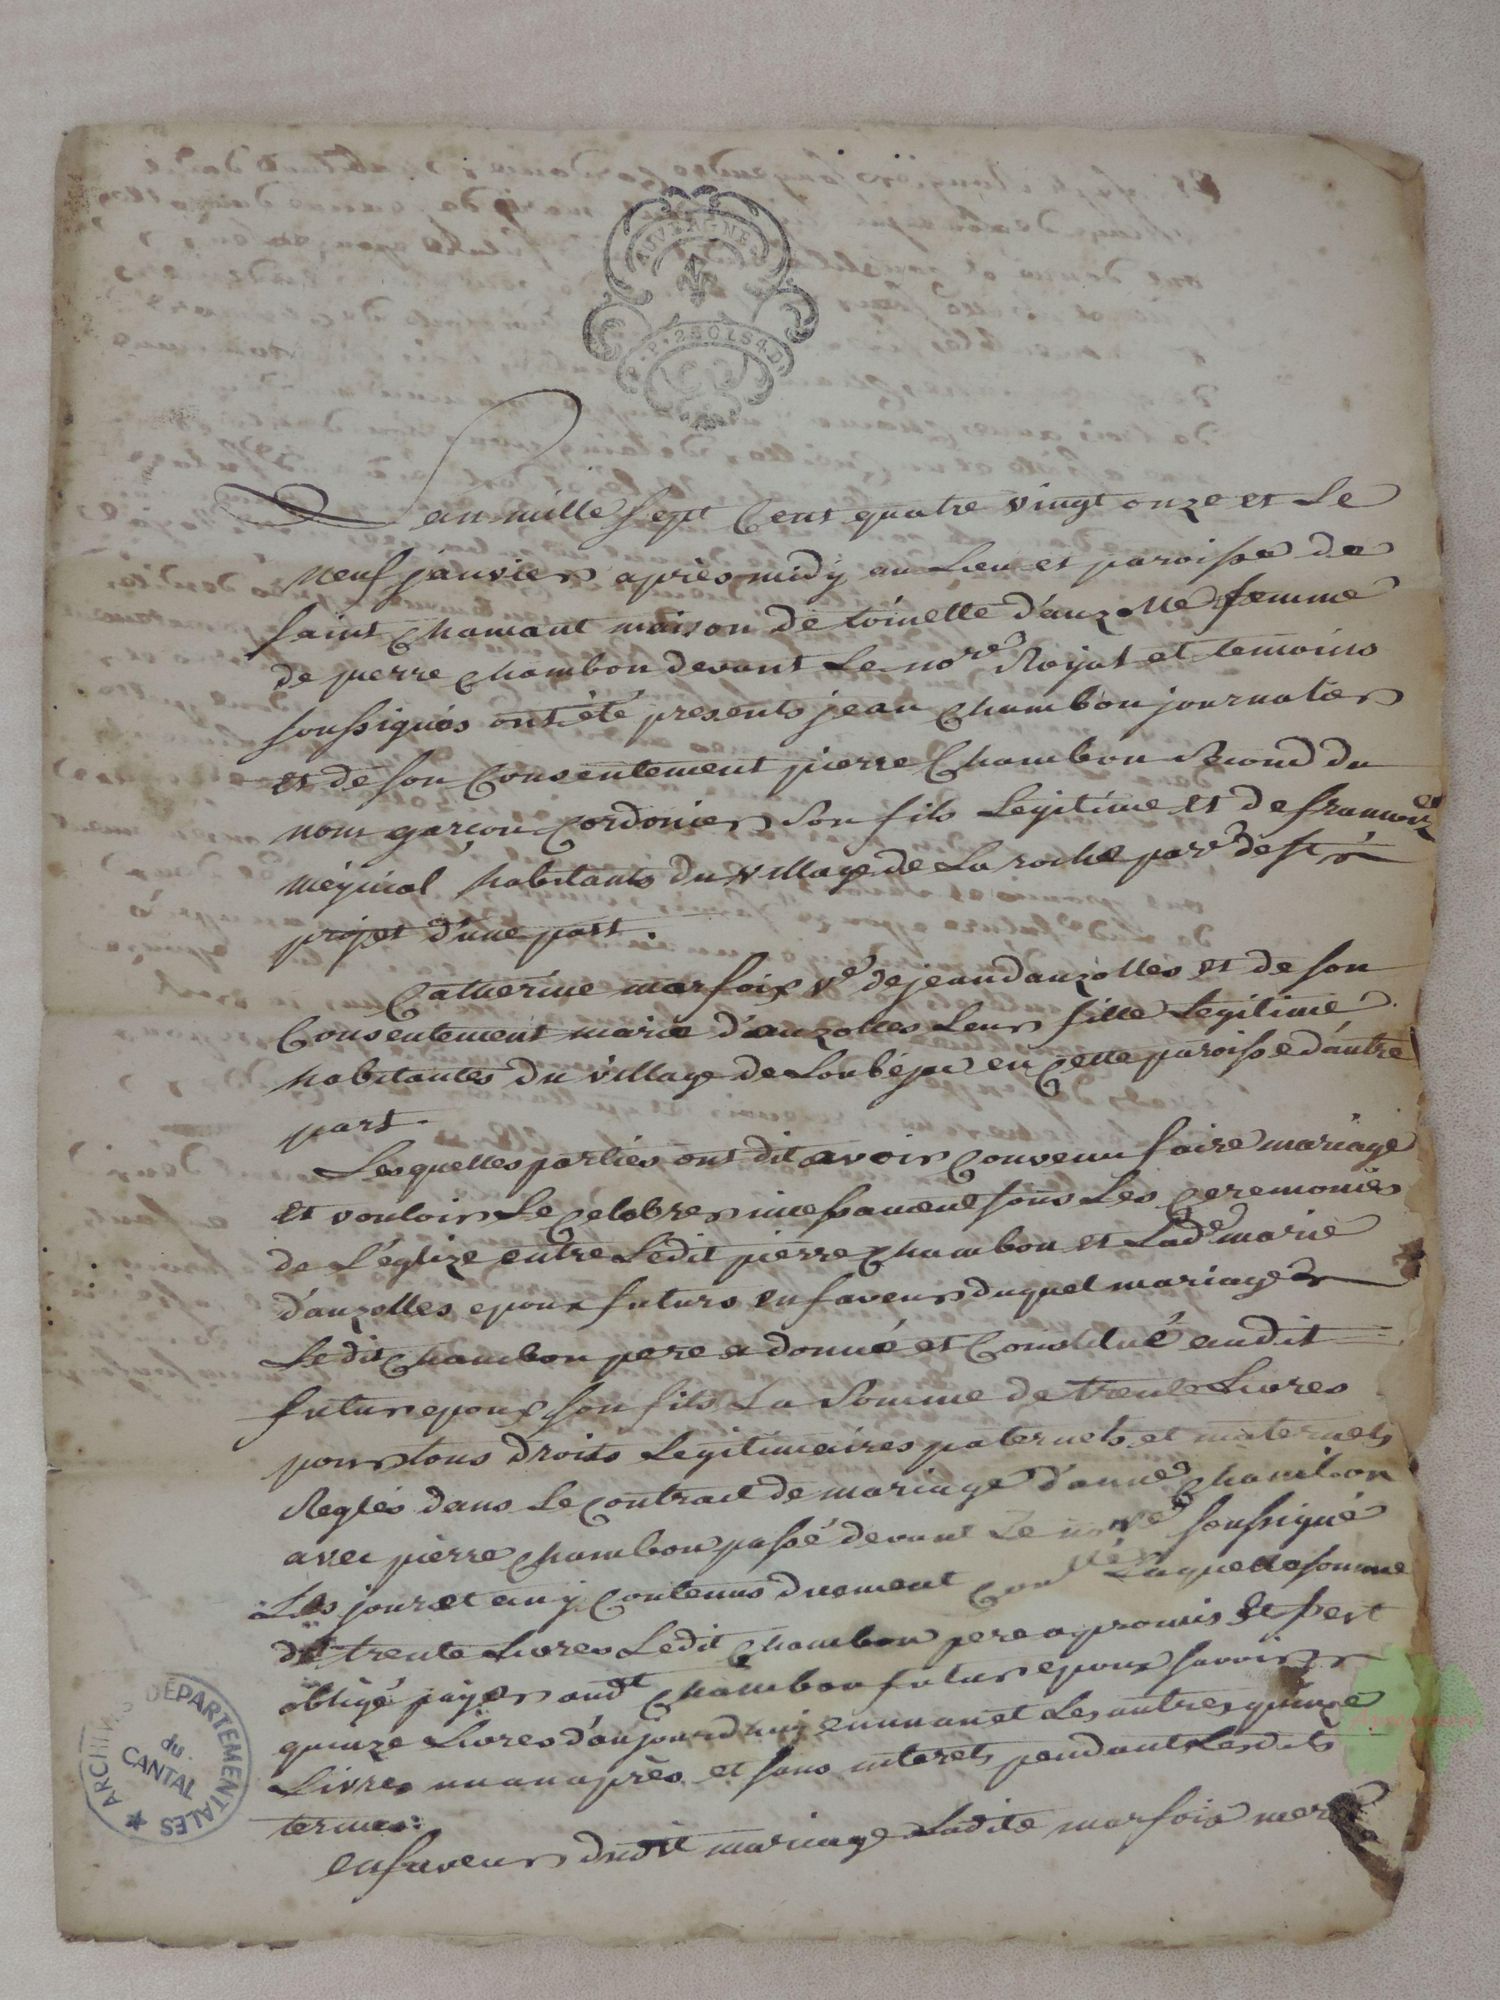 AUVERGNE
G.P. 2SOLS4D
L'an mille sept Cent quatre vingt onze et Le
neuf janvier après midy au Lieu et paroisse de
saint Chamant maison de toinette d'auzolle femme
de pierre Chambon devant Le nore Royal et temoins
soussignés ont été presents jean Chambon journalier
et de son Consentement pierre Chambon Second du
nom garçon Cordonier son fils Legitime et de francoize
méginal habitants du village de La roche par. de st
projet d'une part.
Catherine marfoix ve de jean dauzolles et de son
Consentement marie d'auzolles Leur fille Legitime
habitantes du village de Loubéjac en Cette paroisse d'autre
part.
Lesquelles parties ont dit avoir Convenu faire mariage
et vouloir Le Celebrer incessament sous Les Ceremonies
de L'eglize entre Ledit pierre Chambon et Lade marie
d'auzolles epoux futurs en faveur duquel mariage
Ledit Chambon pere a donné et Constitué audit
futur epoux son fils La Somme de trente Livres
pour tous droits Legitimaires paternels et maternels
Reglés dans Le Contract de mariage d'anne Chambon
avec pierre Chambon passé devant Le nore soussigné
Les jour et an y Contenus duement Conllé Laquelle somme
de trente Livres Ledit Chambon pere a promis et s'est
obligé payer audt Chambon futur epoux savoir
quinze Livres d'aujourd'huy en un an et Les autres quinze
Livres un an après et sans interets pendant Lesdits
termes:
en faveur dudit mariage Ladite marfoix mere
ARCHIVES DÉPARTEMENTALES
du
CANTAL